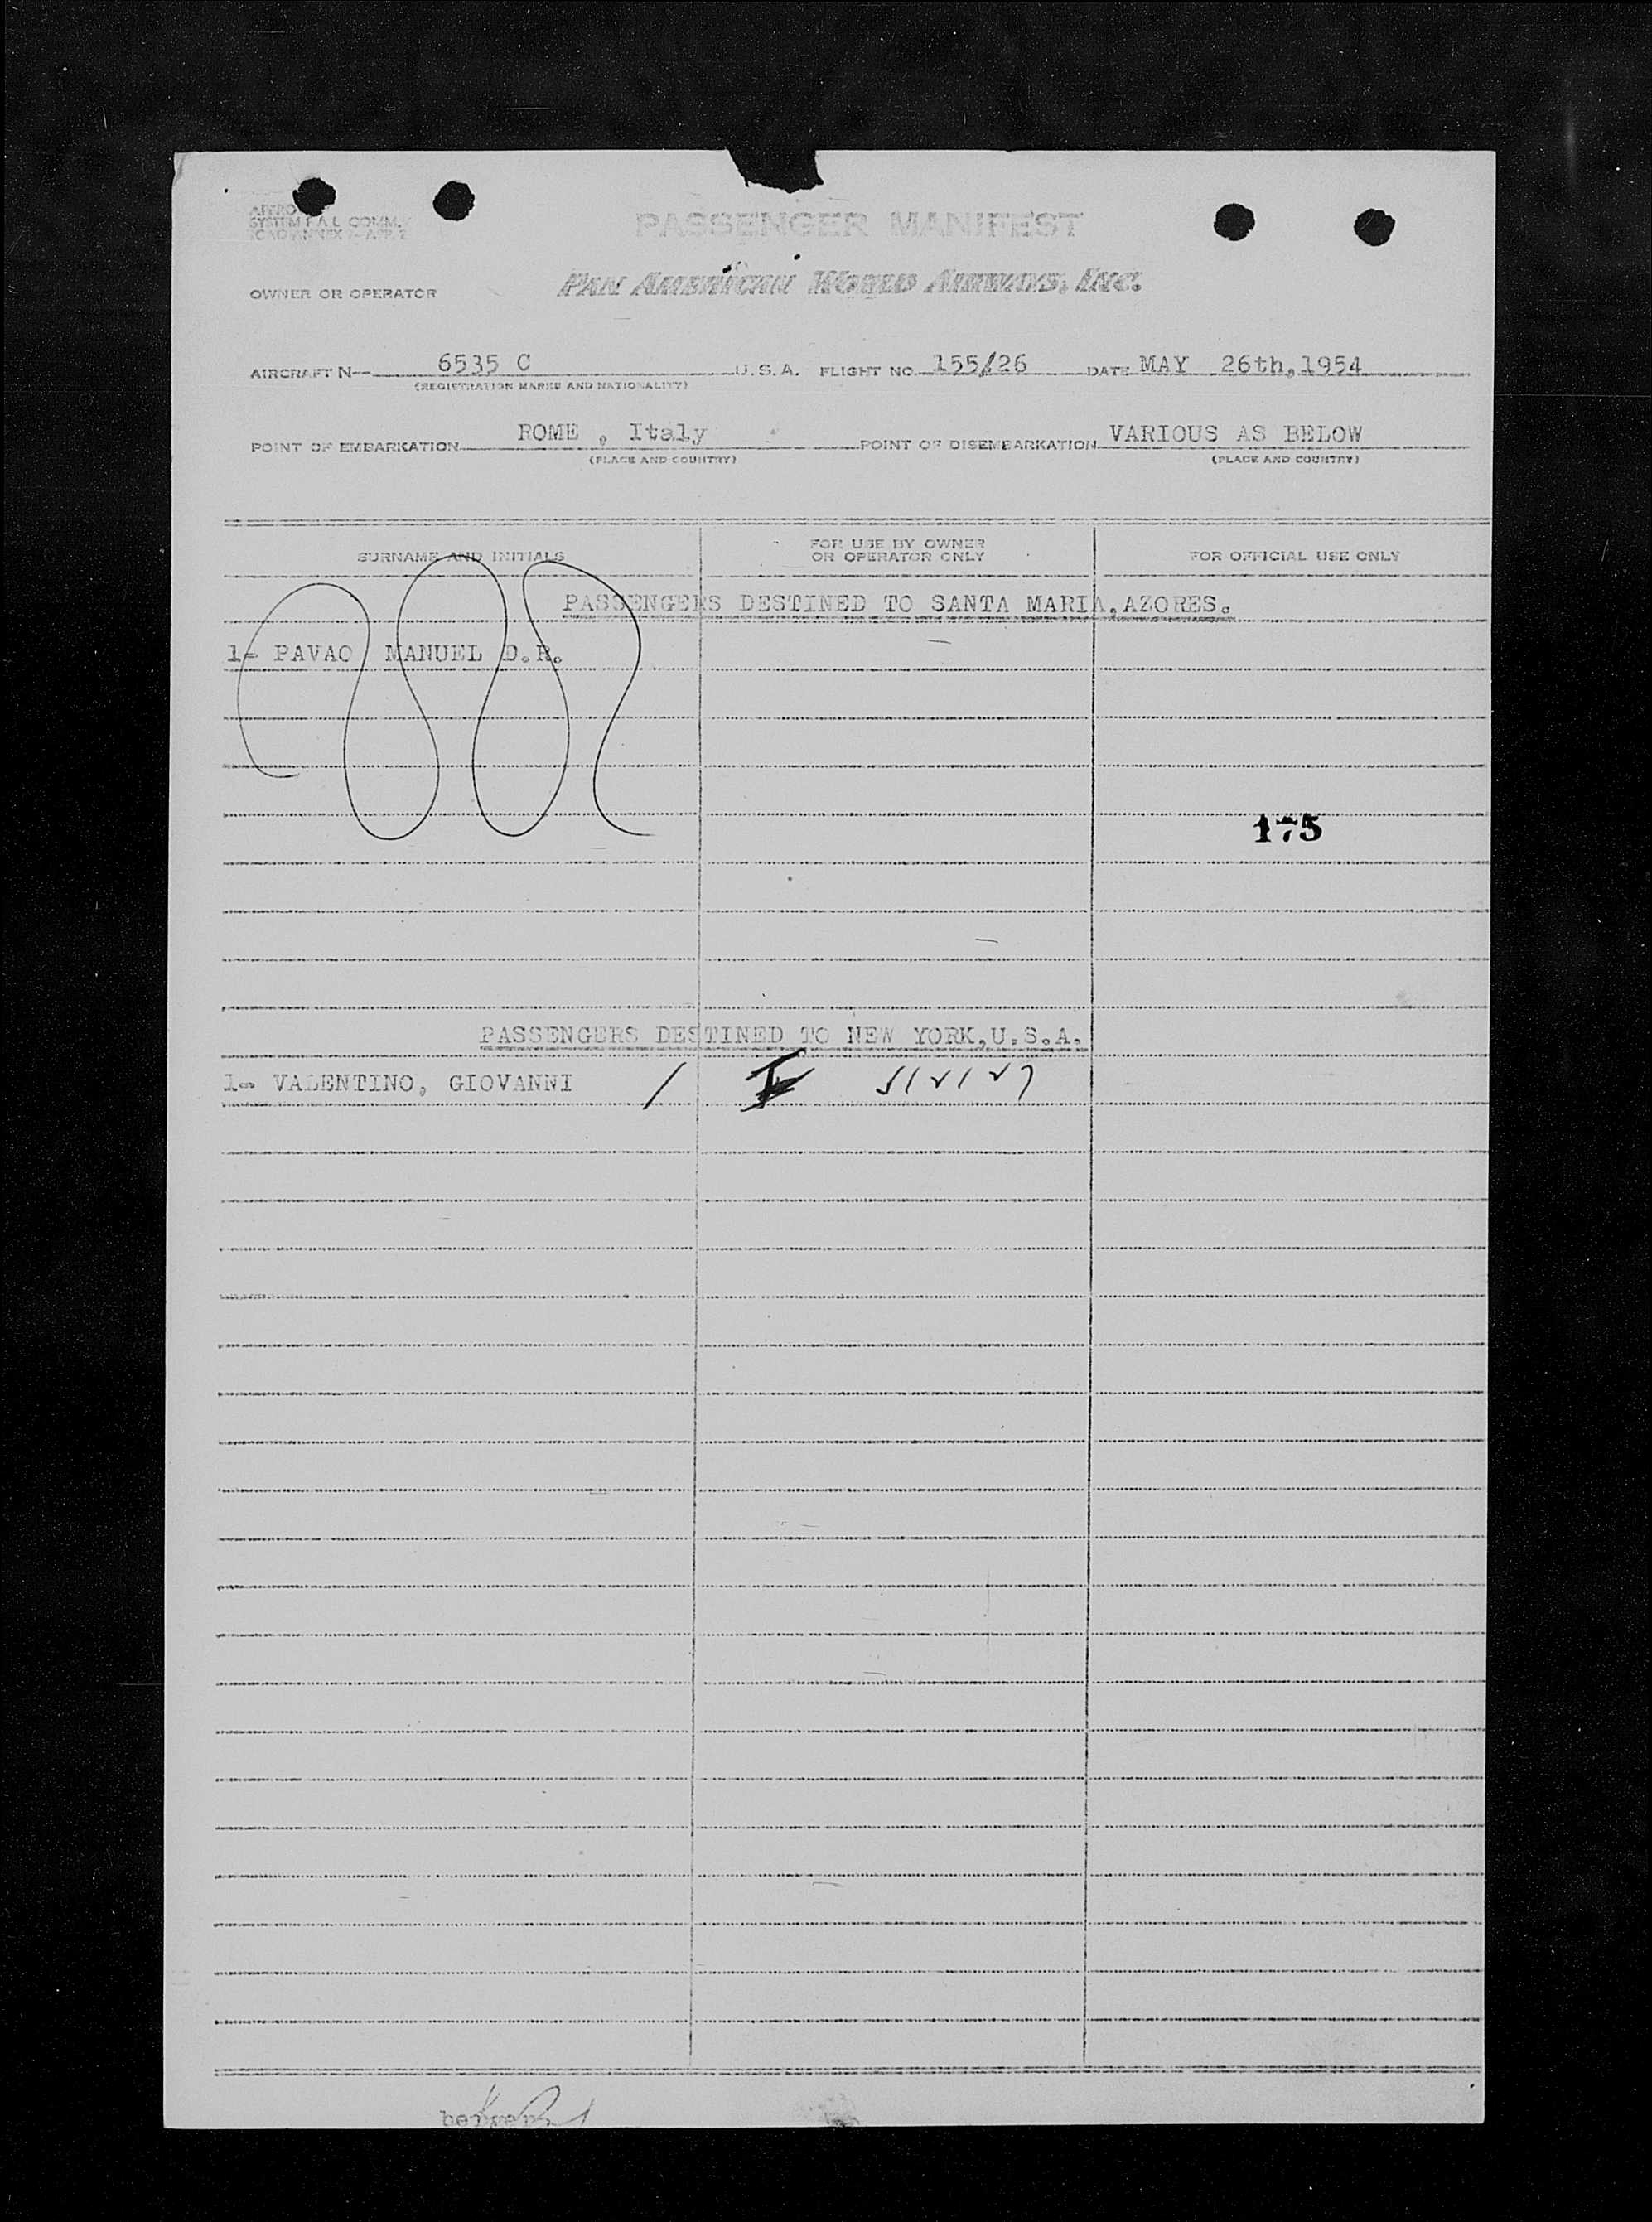 SYSTEM F.A.L. COMM.
PASSENGER MANIFEST
OWNER OR OPERATOR PAN AMERICAN WORLD AIRWAYS, INC.
AIRCRAFT N— 6535 C U.S.A. FLIGHT NO. 155/26 DATE MAY 26th,1954
(REGISTRATION MARKS AND NATIONALITY)
POINT OF EMBARKATION ROME , Italy POINT OF DISEMBARKATION VARIOUS AS BELOW
(PLACE AND COUNTRY) (PLACE AND COUNTRY)
SURNAME AND INITIALS FOR USE BY OWNER OR OPERATOR ONLY FOR OFFICIAL USE ONLY
PASSENGERS DESTINED TO SANTA MARIA,AZORES.
1- PAVAO MANUEL D.R.
175
PASSENGERS DESTINED TO NEW YORK,U.S.A.
1- VALENTINO, GIOVANNI /